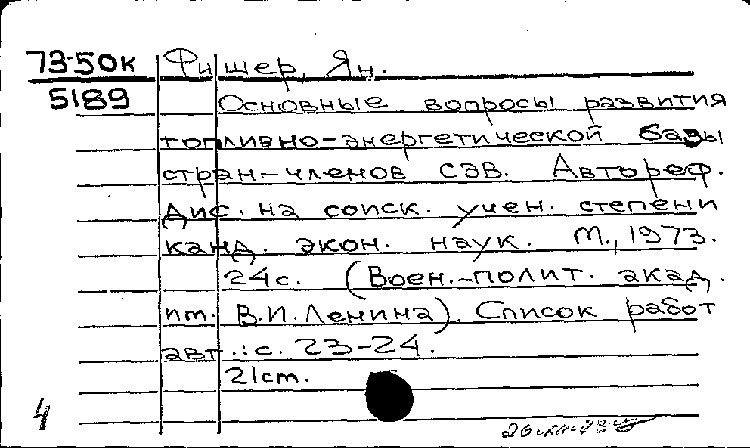 73-50к Фишер, Ян.
5189 Основные вопросы развития
топливно-энергетической базы
стран-членов СЭВ. Автореф.
дис. на соиск. учен. степени
канд. экон. наук. М., 1973.
24с. (Воен.-полит. акад.
им. В.И. Ленина). Список работ
авт.: с. 23-24.
21cm.
4